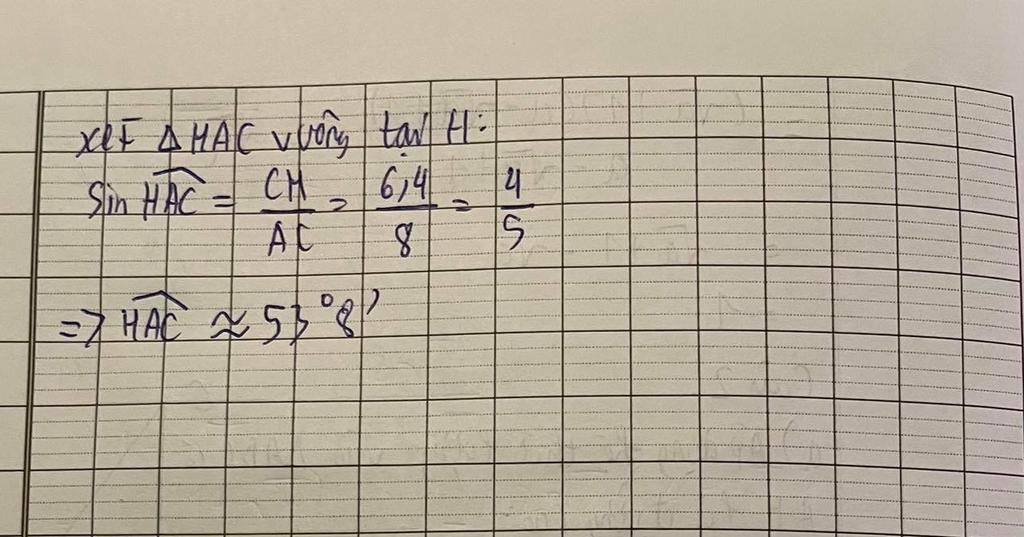 xét Δ HAC vuông tại H:
Sin HAC = CH/AC = 6,4/8 = 4/5
=> HAC ≈ 53°8'